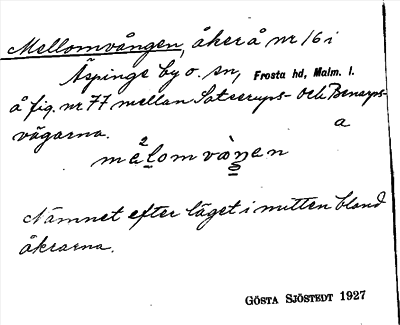 Mellomvången, åker å nr 16 i
Äspinge by o. sn, Frosta hd, Malm. l.
å fig. nr 77 mellan Satserups- och Benarps-
vägarna. a
Namnet efter läget i mitten bland
åkrarna.
GÖSTA SJÖSTEDT 1927